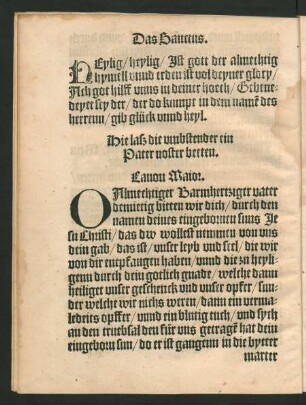 Das Sanctus.
Heylig/heylig/ Ist gott der almechtig
hymell vnnd erden ist vol deyner glory/
Ach got hilff vnns in deiner hoech/ Gebene-
deyet sey der/ der do kumpt in dem namē des
herrenn/ gib glück vnnd heyl.
Hie laß die vmbstender ein
Pater noster betten.
Canon Maior.
O Almechtiger Barmhertziger vater
demütig bitten wir dich/ durch den
namen deines eingebornen suns Je
su Christi/ das dw wollest nemmen von vns
dein gab/ das ist/ vnser leyb vnd seel/ die wir
von dir entpfangen haben/ vnnd die zu heyli-
genn durch dein gotlich gnade/ welche dann
heiliger vnser geschenck vnd vnser opfer/ sun-
der welche wir nichs weren/ dann ein verma-
ledeits opffer/ vnnd ein blutig tuch/ vnd sych
an den truebsal den für vns getragē hat dein
eingeborn sun/ do er ist gangenn in die bytter
marter